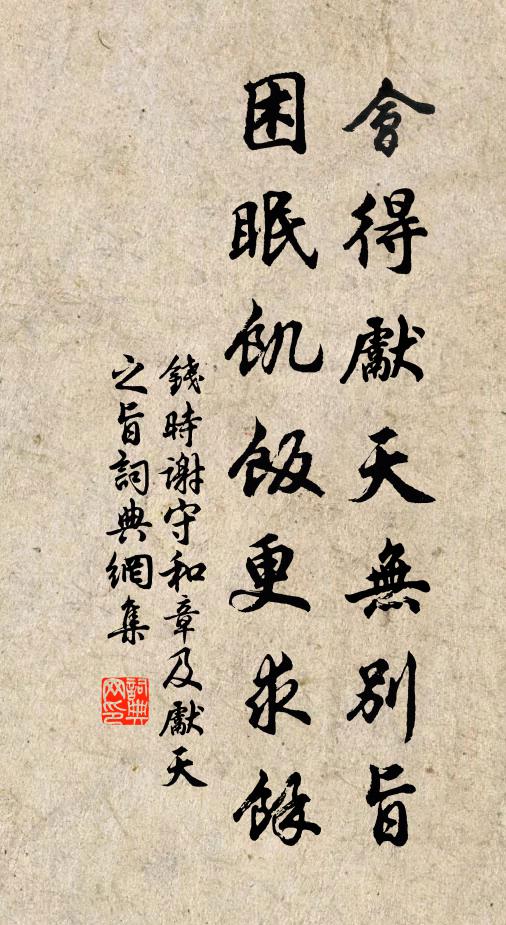 會得獻天無別旨
困眠飢飯更求餘
錢時謝守和章及獻天
之旨詞典網集
詞典
网印